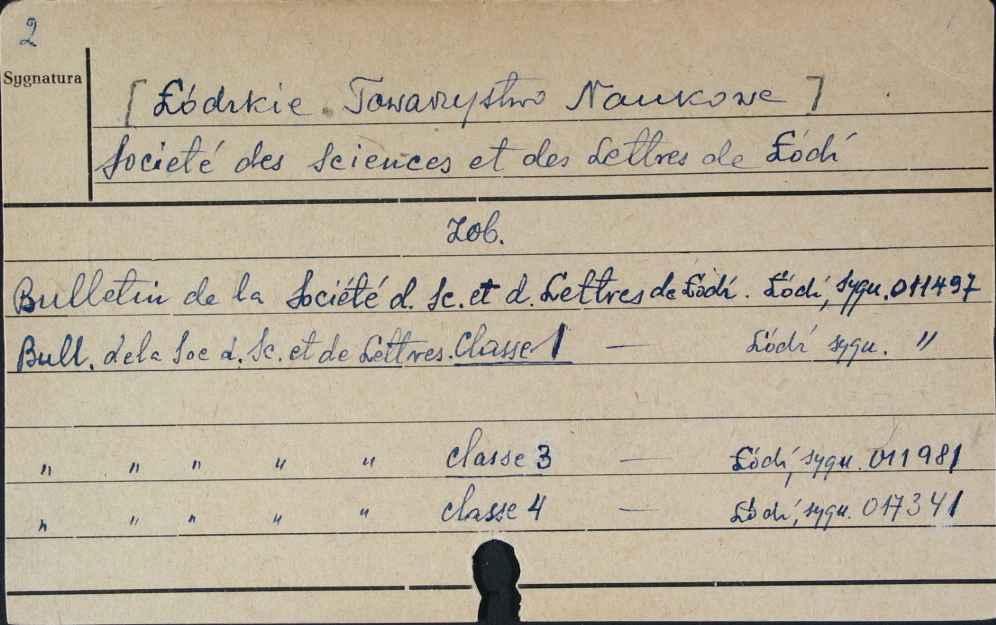 2
Sygnatura
[Łódzkie Towarzystwo Naukowe]
Société des Sciences et des Lettres de Łódź
Zob.
Bulletin de la Société d. Sc. et d. Lettres de Łódź. Łódź, sygn. 011497
Bull. de la Soc d. Sc. et de Lettres. Classe 1 — Łódź sygn. "
" " " " " classe 3 — Łódź, sygn. 011981
" " " " " classe 4 — Łódź, sygn. 017341